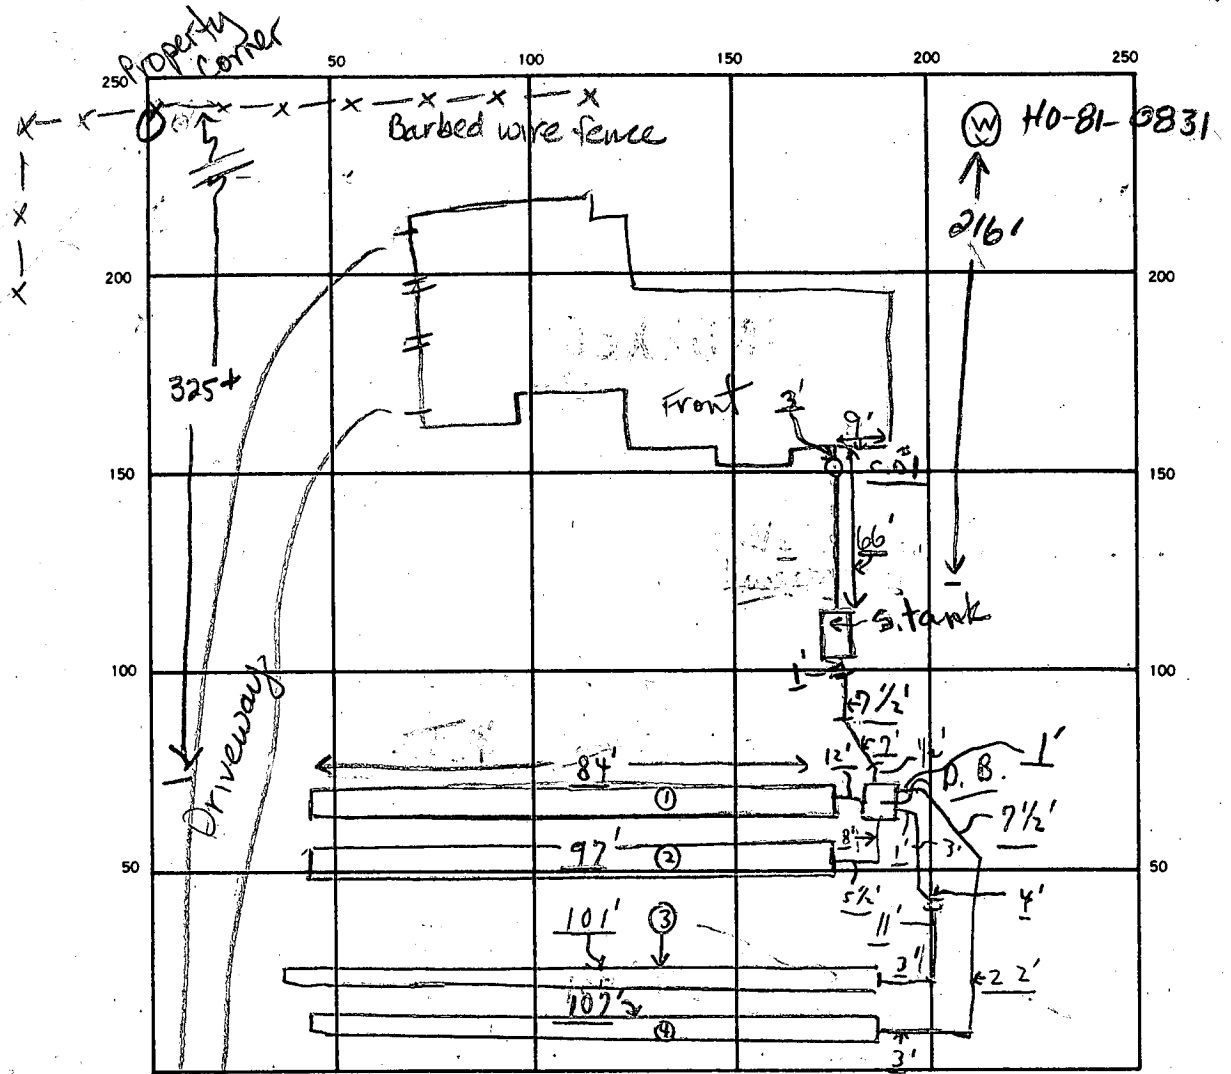 Property
Corner
50
100
150
200
250
250
Barbed wire fence
W
HO-81-0831
216'
200
200
325+
Front
3'
9'
150
66'
S. tank
100
100
1'
7 1/2'
7'
Driveway
84'
12'
1'
D. B.
①
7 1/2'
8'
1'
3'
97'
②
50
50
5 1/2'
4'
11'
101'
③
3'
22'
107'
④
3'